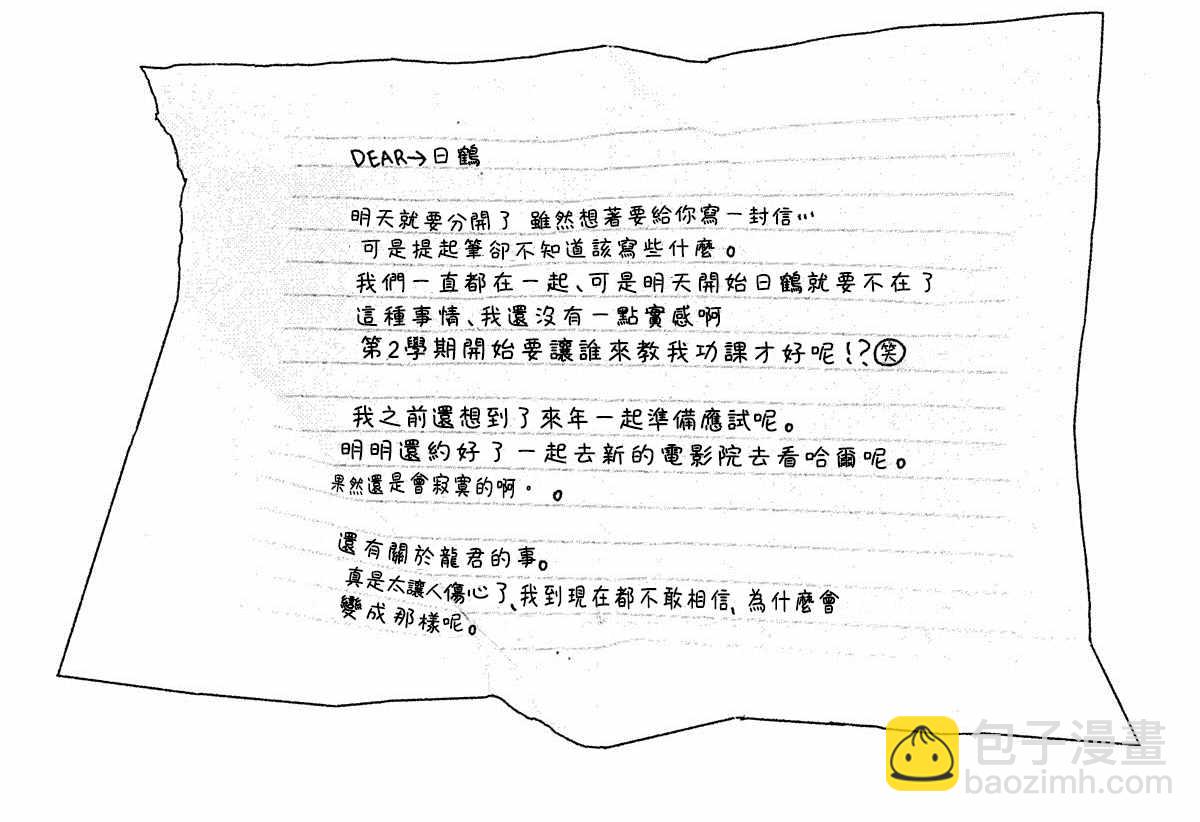 DEAR→日鶴
明天就要分開了 雖然想著要給你寫一封信…
可是提起筆卻不知道該寫些什麼。
我們一直都在一起、可是明天開始日鶴就要不在了
這種事情、我還沒有一點實感啊
第2學期開始要讓誰來教我功課才好呢!?㊗笑
我之前還想到了來年一起準備應試呢。
明明還約好了一起去新的電影院去看哈爾呢。
果然還是會寂寞的啊。。
還有關於龍君的事。
真是太讓人傷心了、我到現在都不敢相信、為什麼會
變成那樣呢。
包子漫畫
baozimh.com